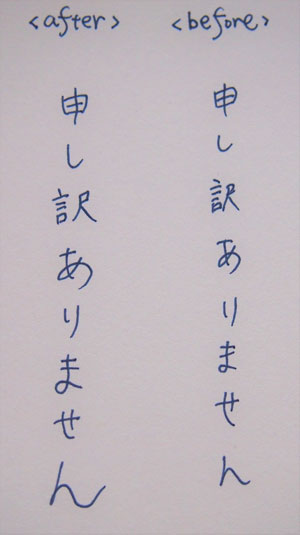 <before>
申し訳ありません
<after>
申し訳ありません